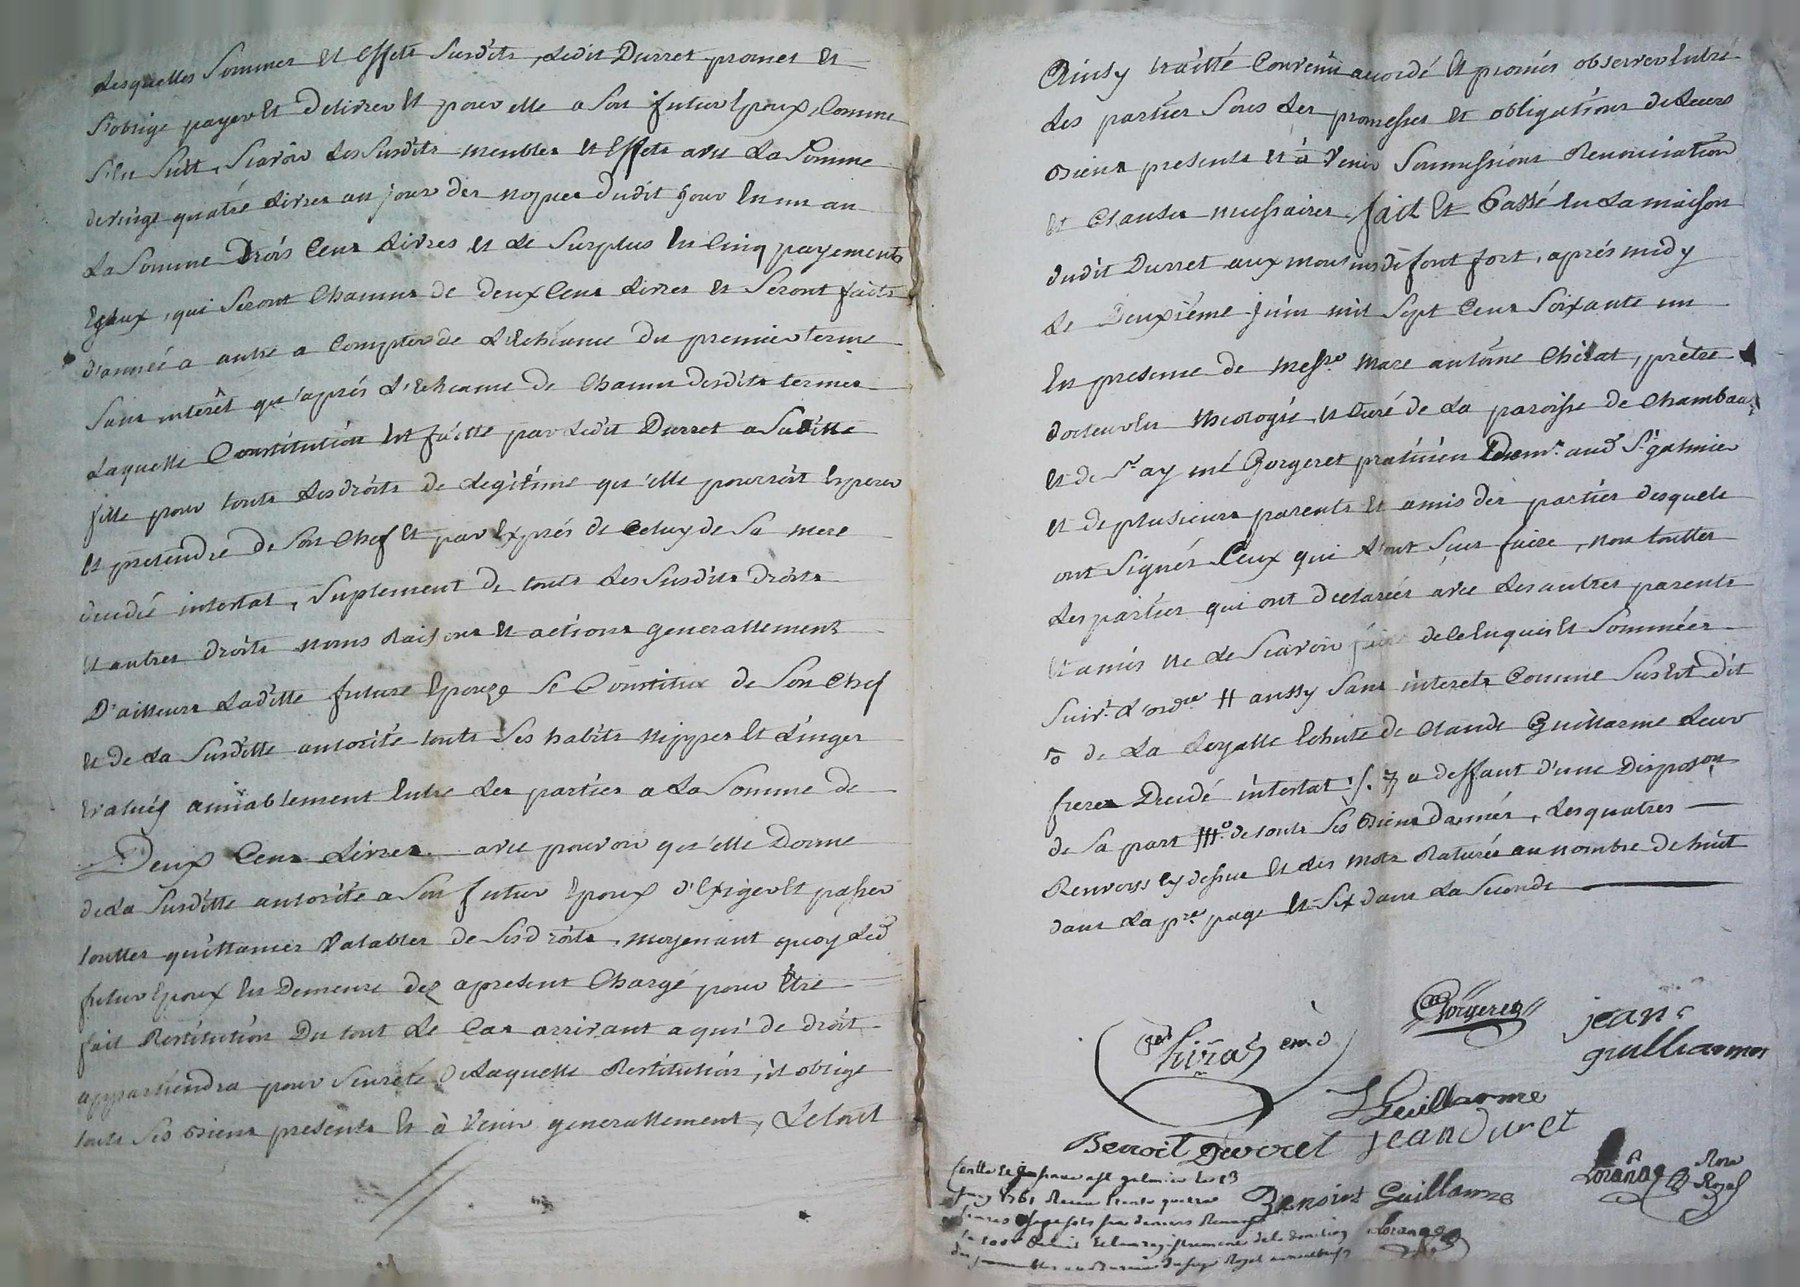 Lesquelles Sommes et Effets Susdits, Ledit Durret promet et
S'oblige payer et delivrer et pour elle a Son futur Epoux, Comme
S'en Suit, Scavoir Les Susdits meubles et Effets avec La Somme
de vingt quatre Livres au jour des nopces dudit jour En un an
La Somme Trois Cens Livres et Le Surplus En Cinq payements
Egaux, qui Seront Chacuns de deux Cens Livres et Seront faits
d'année a autre a Compter de L'Echeance du premier terme
Sans interêt qu'aprés L'Echeance de Chacun desdits termes
Laquelle Constitution Est faitte par Ledit Durret a Saditte
fille pour touts Les droits de Legitime qu'elle pourroit Esperer
Et pretendre de Son Chef Et par Exprés de Celuy de Sa mere
decedée intestat, Suplement de touts Les Susdits droits
Et autres droits noms Raisons et actions generallement
D'ailleurs Laditte future Epouze Se Constitue de Son Chef
Et de La Susditte autorité touts Ses habits nippes Et Linges
Evalués amiablement Entre Les parties a La Somme de
Deux Cens Livres avec pouvoir qu'elle Donne
de La Susditte autorité a Son futur Epoux d'Exiger Et passer
touttes quittances Valables de Ses droits, moyenant quoy Led.
futur Epoux En Demeure dez apresent Chargé pour Etre
fait Restitution Du tout Le Cas arrivant a qui de droit
appartiendra pour Seureté de Laquelle Restitution, il oblige
touts Ses Biens presents Et à Venir generallement, Le tout
Ainsy traitté Convenu accordé Et promis observer Entre
Les parties Sous Les promesses Et obligations de Leurs
Biens presents et à Venir Soumissions Renonciations
Et Clauses necessaires fait Et Passé En La maison
dudit Durret aprés midy
Le Deuxiéme juin mil Sept Cens Soixante un
En presence de Mess.re Marc antoine Chirat, prêtre
docteur En theologie et Curé de La paroisse de Chambœuf
Et de S.r Gorgeret praticien Dem.t aud. S.t galmier
et de plusieurs parents Et amis des parties Lesquels
ont Signés Ceux qui L'ont Sceu faire, non touttes
Les parties qui ont declarées avec Les autres parents
Et amis ne Le Scavoir faire de ce Enquis Et Sommées
Suiv.t L'ord.ce # aussy Sans interets Comme Sus Est dit
de La Loyalle Echute de Claude Guillarme Leur
frere Decedé intestat a deffaut d'une Disposon
de Sa part # de touts Ses Biens Donnés, Les quatres
Renvoys Cy dessus Et Les mots Raturés au nombre de huit
dans La p.re page Et Six dans La Seconde
Gorgeret
jean
guilliarmes
Chirat
Guillarme
Benoit Durret jean Duret
Benoist Guillarme
Loranas Nore Royal
Controllé Et insinué a S.t galmier le 13
juin 1761 Receu trente quatre
livres Sept sols six deniers
Loranas